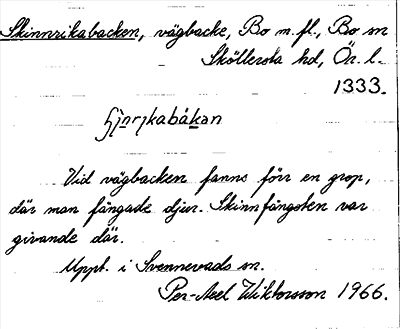 Skinnrikabacken, vägbacke, Bo m.fl., Bo sn
Sköllersta hd, Ör. l.
1333.
Vid vägbacken fanns förr en grop,
där man fångade djur. Skinnfångsten var
givande där.
Uppt. i Svennevads sn.
Per-Axel Wiktorsson 1966.